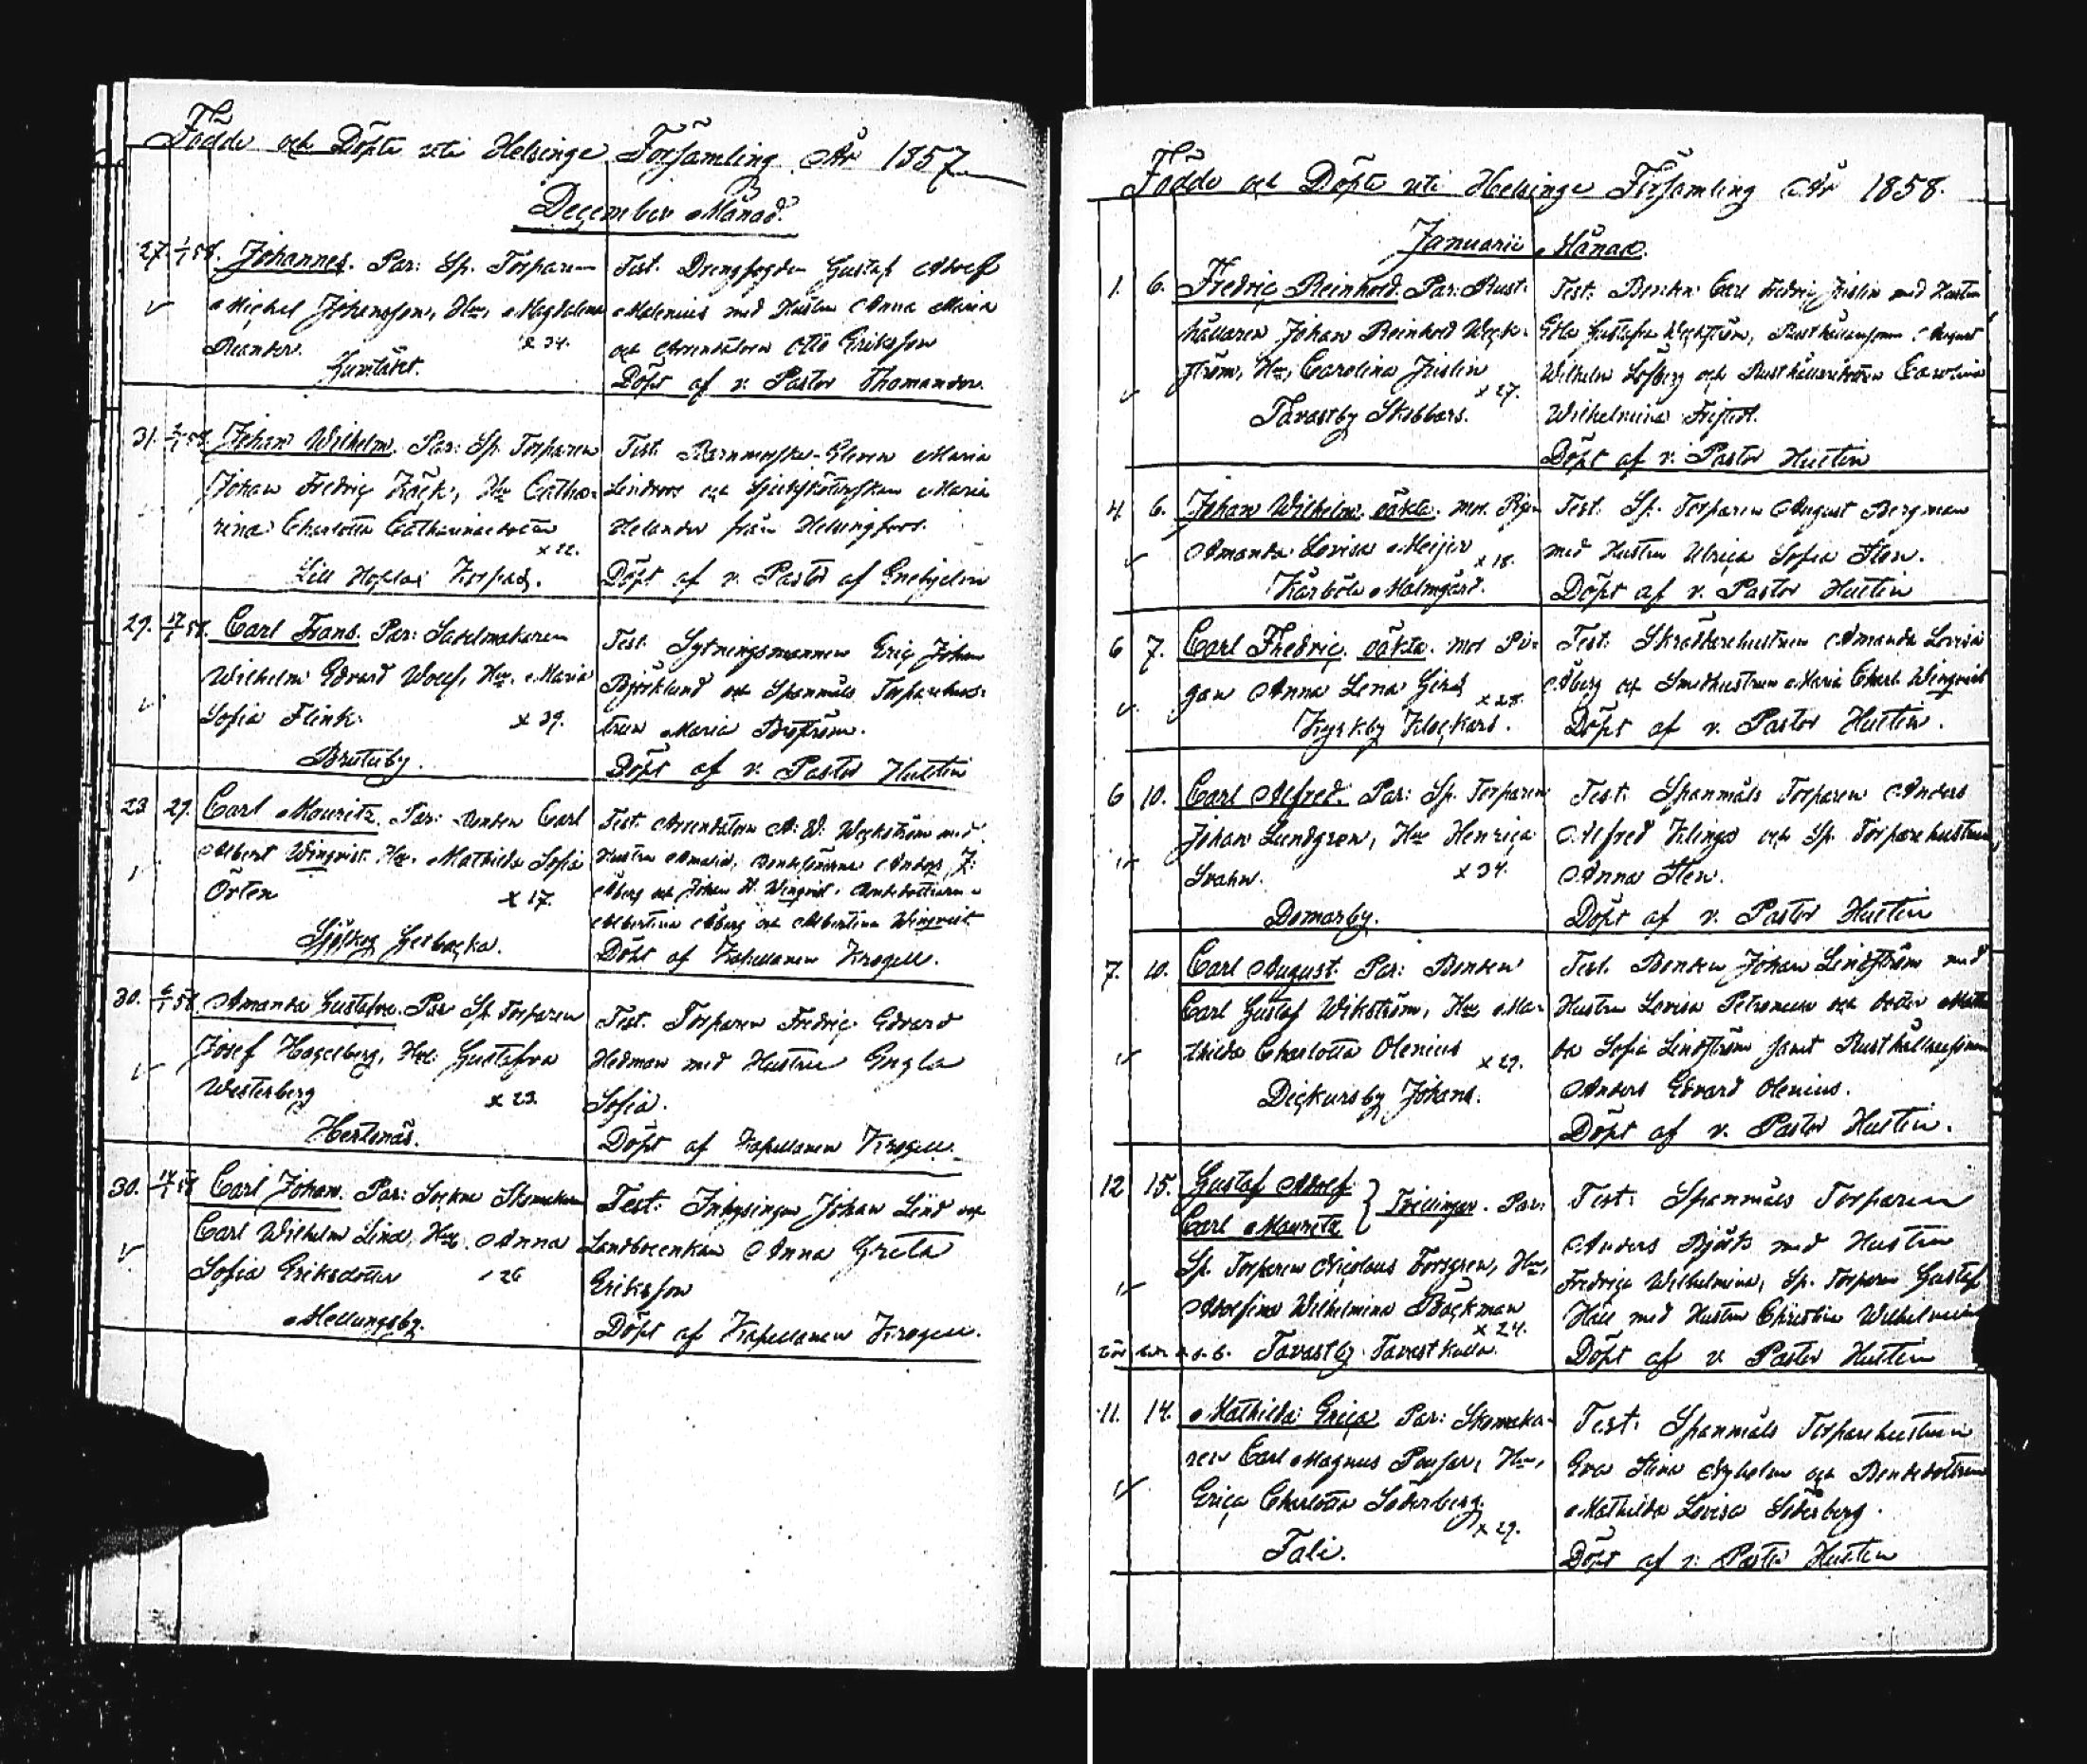 Födde och Döpte uti Helsinge Församling År 1857
December Månad.
27. 1/1 58. Johannes. Par: Sp. Torparen
Michel Johansson, Hu, Magdalena
Reander. x 34.
Gumtäkt.
Test. Drengfogden Gustaf Adolf
Malenius med Hustru Anna Maria
och Arrendatorn Otto Eriksson
Döpt af v. Pastor Thomander.
31. 58. Johan Wilhelm. Par: Sp. Torparen
Johan Fredric Köck, Hu Catha-
rina Charlotta Catharinaedotter
x 22.
Lill Hoplax Korpas.
Test. Barnmorske-Eleven Maria
Lindroos och Sjuksköterskan Maria
Helander från Helsingfors.
Döpt af v. Pastor af Enehjelm
29. 17/1 58. Carl Frans. Par: Sadelmakaren
Wilhelm Edvard Woulf, Hu. Maria
Sofia Flink. x 39.
Brutuby.
Test. Sytningsmannen Eric Johan
Björklund och Spanmåls Torparehus-
trun Maria Boström.
Döpt af v. Pastor Hultin
23. 27. Carl Mouritz. Par: Bonden Carl
Albert Winqvist Hu. Mathilda Sofia
Örten x 17.
Sjöskog Gerbacka.
Test. Arrendatorn A. W. Weckström med
Hustru Amanda, Bondesönerne Anders J.
Åberg och Johan H. Winqvist, Bondedöttrarna
Albertina Åberg och Albertina Winqvist
Döpt af Kapellanen Krogell.
30. 6/1 58. Amanda Gustafva. Par Sp. Torparen
Josef Hagelberg, Hu: Gustafva
Westerberg x 23.
Hertonäs.
Test. Torparen Fredric Edvard
Hedman med Hustru Engla
Sofia.
Döpt af Kapellanen Krogell.
30. 14/1 58 Carl Johan. Par: Sockne Skomakaren
Carl Wilhelm Lind, Hu. Anna
Sofia Eriksdotter 26
Mellungsby.
Test: Inhysingen Johan Lind och
Landboenkan Anna Greta
Eriksson
Döpt af Kapellanen Krogell.
Födde och Döpte uti Helsinge Församling År 1858.
Januarii Månad.
1. 6. Fredric Reinhold. Par: Rust-
hållaren Johan Reinhold Weck-
ström, Hu, Carolina Frislin
x 27.
Tavastby Skubbars.
Test. Bonden Carl Fredric Frislin med Hustru
Edla Gustafva Weckström, Rusthållaresonen August
Wilhelm Löfberg och Rusthållaredottern Carolina
Wilhelmina
Döpt af v. Pastor Hultin
4. 6. Johan Wilhelm. oäkta. Mor. Pigan
Amanda Lovisa Meijer x 18.
Kårböle Malmgård.
Test. Sp. Torparen August Bergman
med Hustru Ulrica Sofia Sten.
Döpt af v. Pastor Hultin
6 7. Carl Fredric. oäkta. Mor Pi-
gan Anna Lena Gerds x 28.
Kyrkby Klockars.
Test: Skräddarehustrun Amanda Lovisa
Åberg och Smedhustrun Maria Charl. Winqvist
Döpt af v. Pastor Hultin.
6 10. Carl Alfred. Par: Sp. Torparen
Johan Lundgren, Hu Henrica
Svahn. x 34.
Domarby.
Test: Spanmåls Torparen Anders
Alfred Klinga och Sp. Torparehustrun
Anna Sten.
Döpt af v. Pastor Hultin
7. 10. Carl August. Par: Bonden
Carl Gustaf Wikström, Hu Ma-
thilda Charlotta Olenius x 29.
Dickursby Johans.
Test. Bonden Johan Lindström med
Hustru Lovisa Petronella och dotter Mathil
da Sofia Lindström samt Rusthållaresonen
Anders Edvard Olenius.
Döpt af v. Pastor Hultin.
12 15. Gustaf Adolf
Carl Mauritz } Tvillingar. Par:
Sp. Torparen Nicolaus Forsgren, Hu,
Adolfina Wilhelmina Bäckman
x 24.
Tavastby Tavastkulla.
Test: Spanmåls Torparen
Anders Björks med Hustru
Fredrica Wilhelmina, Sp. Torparen Gustaf
Häll med Hustru Christina Wilhelmina
Döpt af v. Pastor Hultin
11. 14. Mathilda Erica Par: Skomaka-
ren Carl Magnus Ponsar, Hu,
Erica Charlotta Söderberg.
x 29.
Tali.
Test: Spanmåls Torparehustrun
Eva Stina Nyholm och Bondedottren
Mathilda Lovisa Söderberg.
Döpt af v. Pastor Hultin